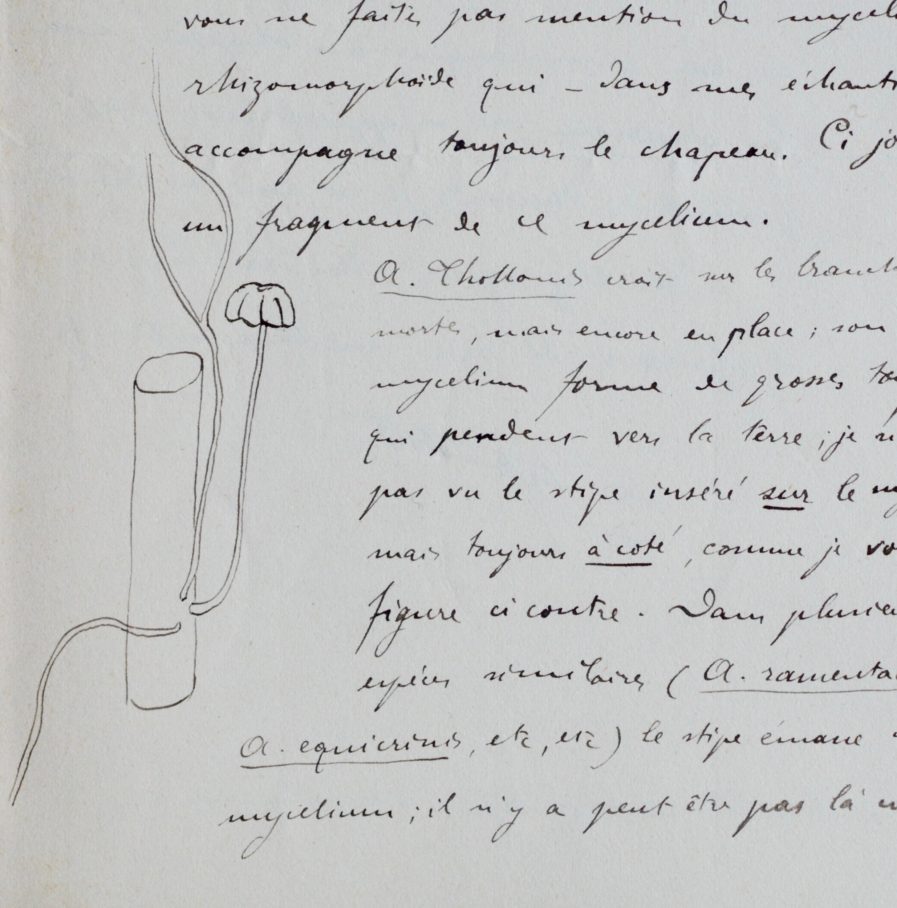 vous ne faites pas mention du myceli
rhizomorphoïde qui – dans mes échanti
accompagne toujours le chapeau. Ci jo
un fragment de ce mycelium.
A. Thollonis croit sur les branch
mortes, mais encore en place ; son
mycelium forme de grosses tou
qui pendent vers la terre ; je n
pas vu le stipe inséré sur le my
mais toujours à coté, comme je vo
figure ci contre. Dans plusieu
espèces similaires (A. ramenta
A. equicrinis, etc, etc) le stipe émane
mycelium ; il n'y a peut être pas là u